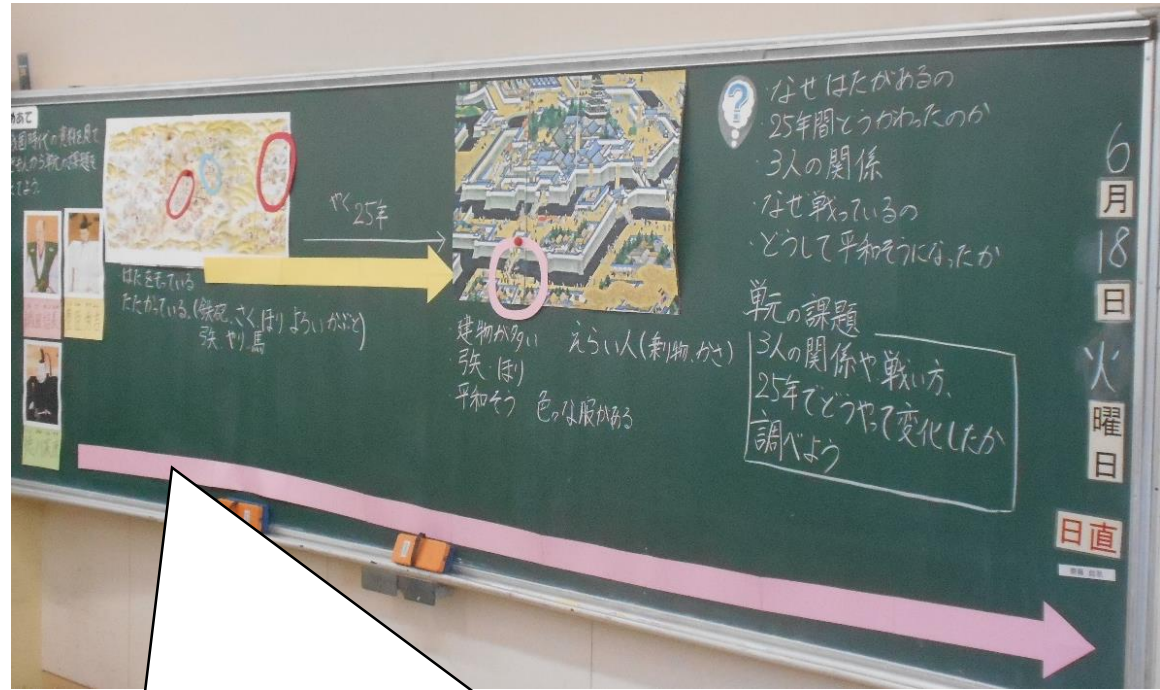 めあて
戦国時代の資料を見て
たてよう
やく25年
はたをもっている
たたかっている。(鉄砲、さく ほり よろいかぶと)
弓矢 やり 馬
・建物が多い えらい人(乗り物、かさ)
・弓矢 ほり
平和そう 色々な服がある
?
・なぜはたがあるの
・25年間どうかわったのか
・3人の関係
・なぜ戦っているの
・どうして平和そうになったか
単元の課題
3人の関係や戦い方、
25年でどうやって変化したか
調べよう
6
月
18
日
火
曜
日
日直